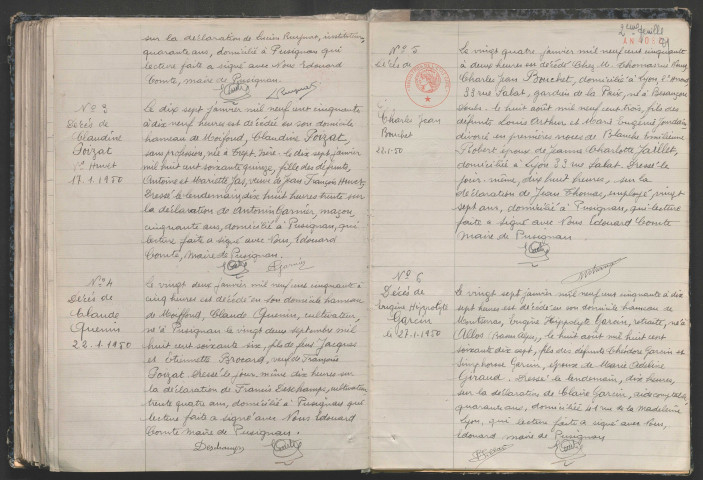 sur la déclaration de Lucien, instituteur,
quarante ans, domicilié à Pusignan qui
lecture faite a signé avec Nous Edouard
Comte, maire de Pusignan.
N° 3
Décès de
Claudine
Poizat
Vve Huvet
17.1.1950
le dix sept janvier mil neuf cent cinquante
à dix neuf heures est décédée en son domicile
hameau de Moifond, Claudine Poizat,
sans profession, née à Crept, Isère, le dix sept janvier
mil huit cent soixante quinze, fille des défunts,
Antoine et Mariette Jas, veuve de Jean François Huvet,
Dressé le lendemain, dix huit heures trente sur
la déclaration de Antonin Garnier, maçon,
cinquante ans, domicilié à Pusignan, qui
lecture faite a signé avec Nous, Edouard
Comte, Maire de Pusignan.
N° 4
Décès de
Claude
Guenin
22.1.1950
le vingt deux janvier mil neuf cent cinquante à
cinq heures est décédé en son domicile hameau
de Moifond, Claude Guenin, cultivateur,
né à Pusignan le vingt deux septembre mil
huit cent soixante six, fils de feus Jacques
et Etiennette Brocard, veuf de Françoise
Poizat. Dressé le jour même dix heures sur
la déclaration de Francis Deschamps, cultivateur
trente quatre ans, domicilié à Pusignan qui
lecture faite a signé avec Nous Edouard
Comte Maire de Pusignan.
Deschamps
2ème feuille
N° 5
Décès de
Charles Jean
Bouchet
22.1.50
le vingt quatre janvier mil neuf cent cinquante
à deux heures est décédé chez M. Thomas
Charles Jean Bouchet, domicilié à Lyon
33 rue Salat, gardien de la Paix, né à Besançon
Doubs, le huit août mil neuf cent trois, fils des
défunts Louis Arthur et Marie Eugénie Jourdain
divorcé en premières noces de Blanche Emilienne
Robert époux de Jeanne Charlotte Jaillet,
domiciliée à Lyon 33 rue Salat. Dressé le
jour même, dix huit heures, sur la
déclaration de Jean Thomas, employé, vingt
sept ans, domicilié à Pusignan, qui lecture
faite a signé avec Nous Edouard Comte
Maire de Pusignan
N° 6
Décès de
Eugène Hippolyte
Garcin
le 27.1.1950
le vingt sept janvier mil neuf cent cinquante à dix
sept heures est décédé en son domicile hameau de
Eugène Hippolyte Garcin, retraité, né à
Allos (Basses Alpes), le huit août mil huit cent
soixante dix sept, fils des défunts Théodore Garcin et
Symphorose Garcin, époux de Marie Adeline
Giraud. Dressé le lendemain, dix heures,
sur la déclaration de Claire Garcin,
quarante ans, domiciliée rue de la Madeleine
Lyon, qui lecture faite a signé avec Nous,
Edouard maire de Pusignan